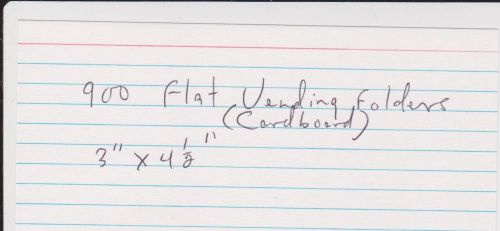 900 Flat Vending Folders
(Cardboard)
3" x 4 1/2"